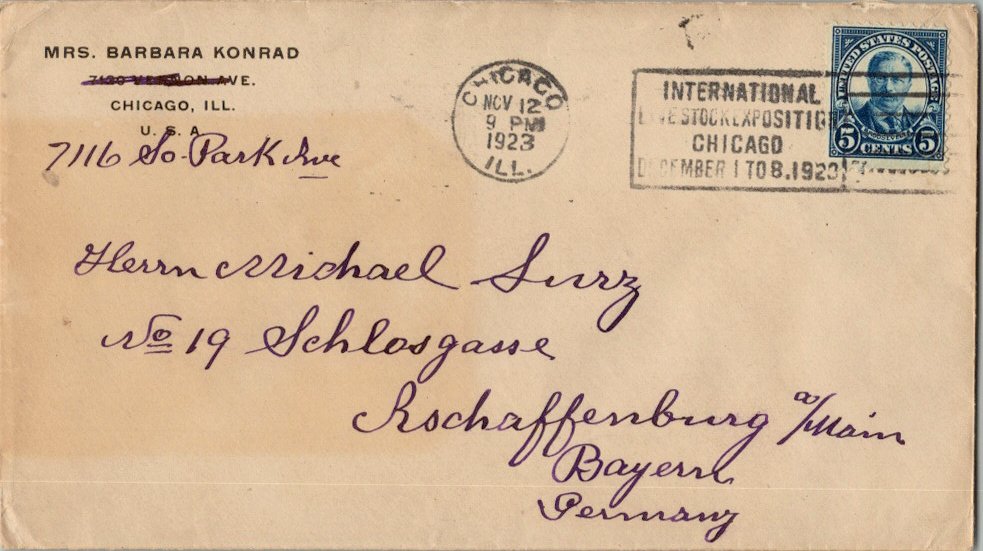 MRS. BARBARA KONRAD
7120 VERNON AVE.
CHICAGO, ILL.
U. S. A.
7116 So. Park Ave
CHICAGO
NOV 12
9 PM
1923
ILL.
INTERNATIONAL
LIVE STOCK EXPOSITION
CHICAGO
DECEMBER 1 TO 8. 1923
UNITED STATES POSTAGE
ROOSEVELT
5 CENTS 5
Herrn Michael Surz
No 19 Schlosgasse
Aschaffenburg a/Main
Bayern
Germany